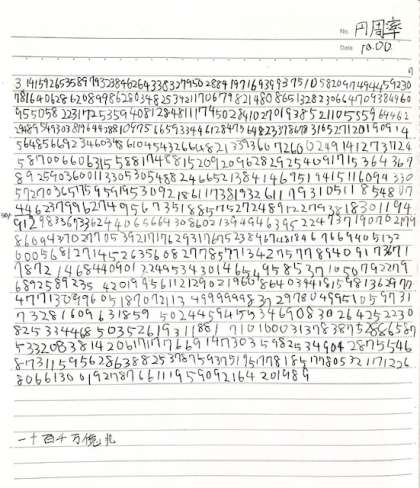 No. 円周率
Date 10.00.
3 14159265358979323846264338327950288419716939937510582097494459230
7816406286208998628034825342117067982148086513282306647093844460
955058223172535940812848111745028410270193852110555964462
294895493038196442881097566593344612847564823378678316527120190914
5648566923460348610454326648213393607260249141273724
587006606315588174881520920962829254091715364367
8925903600113305305488204665213841469519415116094330
5727036575959195309218611738193261179310511854807
446237996274956735188575272489122793818301194
912983367336244065664308602139494639522473719070217 9
86094370277053921717629317675238467481846766940513 2
00056812714526356082778577134275778960917363 71
78721468440901224953430146549585371050792279
6892589235 420199561121290219608640344181598136297 7
4771309960518707211349999998372978049951059731
73281609631859 5024459455346908302642522230
825334468503526193118817101000313783875288658 7
533208381420617177669147303598253490428755468
73115956286388235378759375195778185778053217122 6
8066130019278766111959092164201989
一十百千万億兆